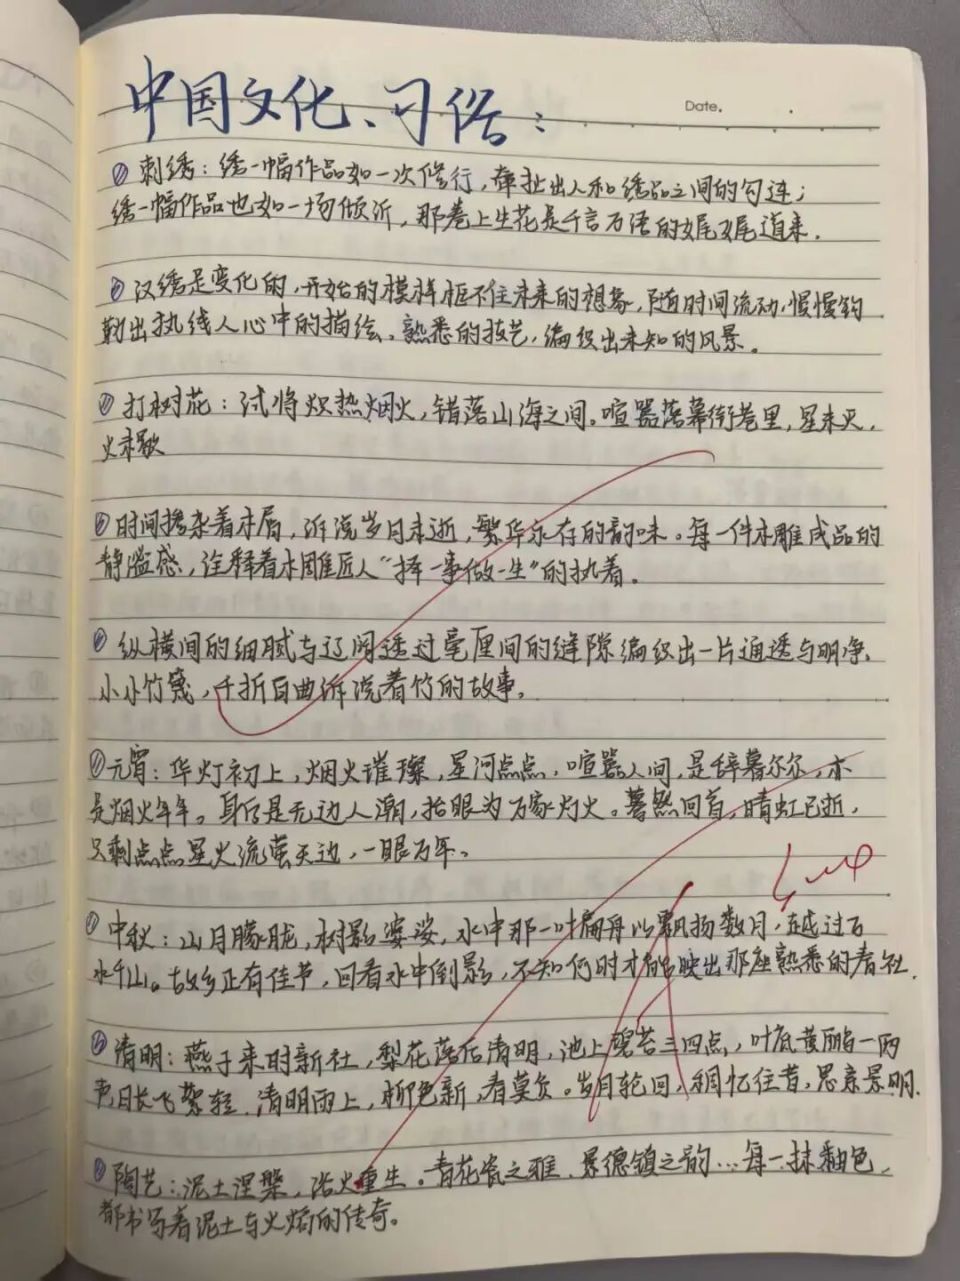 中国文化、习俗：
Date.
刺绣：绣一幅作品如一次修行，牵扯出人和绣品之间的勾连；
绣一幅作品也如一场倾诉，那卷上生花是千言万语的娓娓道来．
汉绣是变化的，开始的模样框不住未来的想象，随时间流动，慢慢钩
勒出执线人心中的描绘。熟悉的技艺，编织出未知的风景。
打树花：试将炽热烟火，错落山海之间。喧嚣落幕街巷里，星未灭，
火未歇
时间掺杂着木屑，诉说岁月未逝，繁华永存的韵味。每一件木雕成品的
静谧感，诠释着木雕匠人“择一事做一生”的执着。
纵横间的细腻与辽阔透过毫厘间的缝隙编织出一片通透与明净，
小小竹篾，千折百曲诉说着竹的故事。
元宵：华灯初上，烟火璀璨，星河点点，喧嚣人间，是辞暮尔尔，亦
是烟火年年。身后是无边人潮，抬眼为万家灯火。蓦然回首，晴虹已逝，
只剩点点星火流萤天边，一眼万年。
中秋：山月朦胧，树影婆娑，水中那一叶扁舟以飘扬数月，越过百
水千山。故乡正有佳节，回看水中倒影，不知何时才能映出那座熟悉的春社．
清明：燕子来时新社，梨花落后清明，池上碧苔三四点，叶底黄鹂一两
声日长飞絮轻．清明雨上，柳色新，春莫负。岁月轮回，稠忆往昔，思亲景明．
陶艺：泥土涅槃，浴火重生。青花瓷之雅．景德镇之韵…每一抹釉色，
都书写着泥土与火焰的传奇。